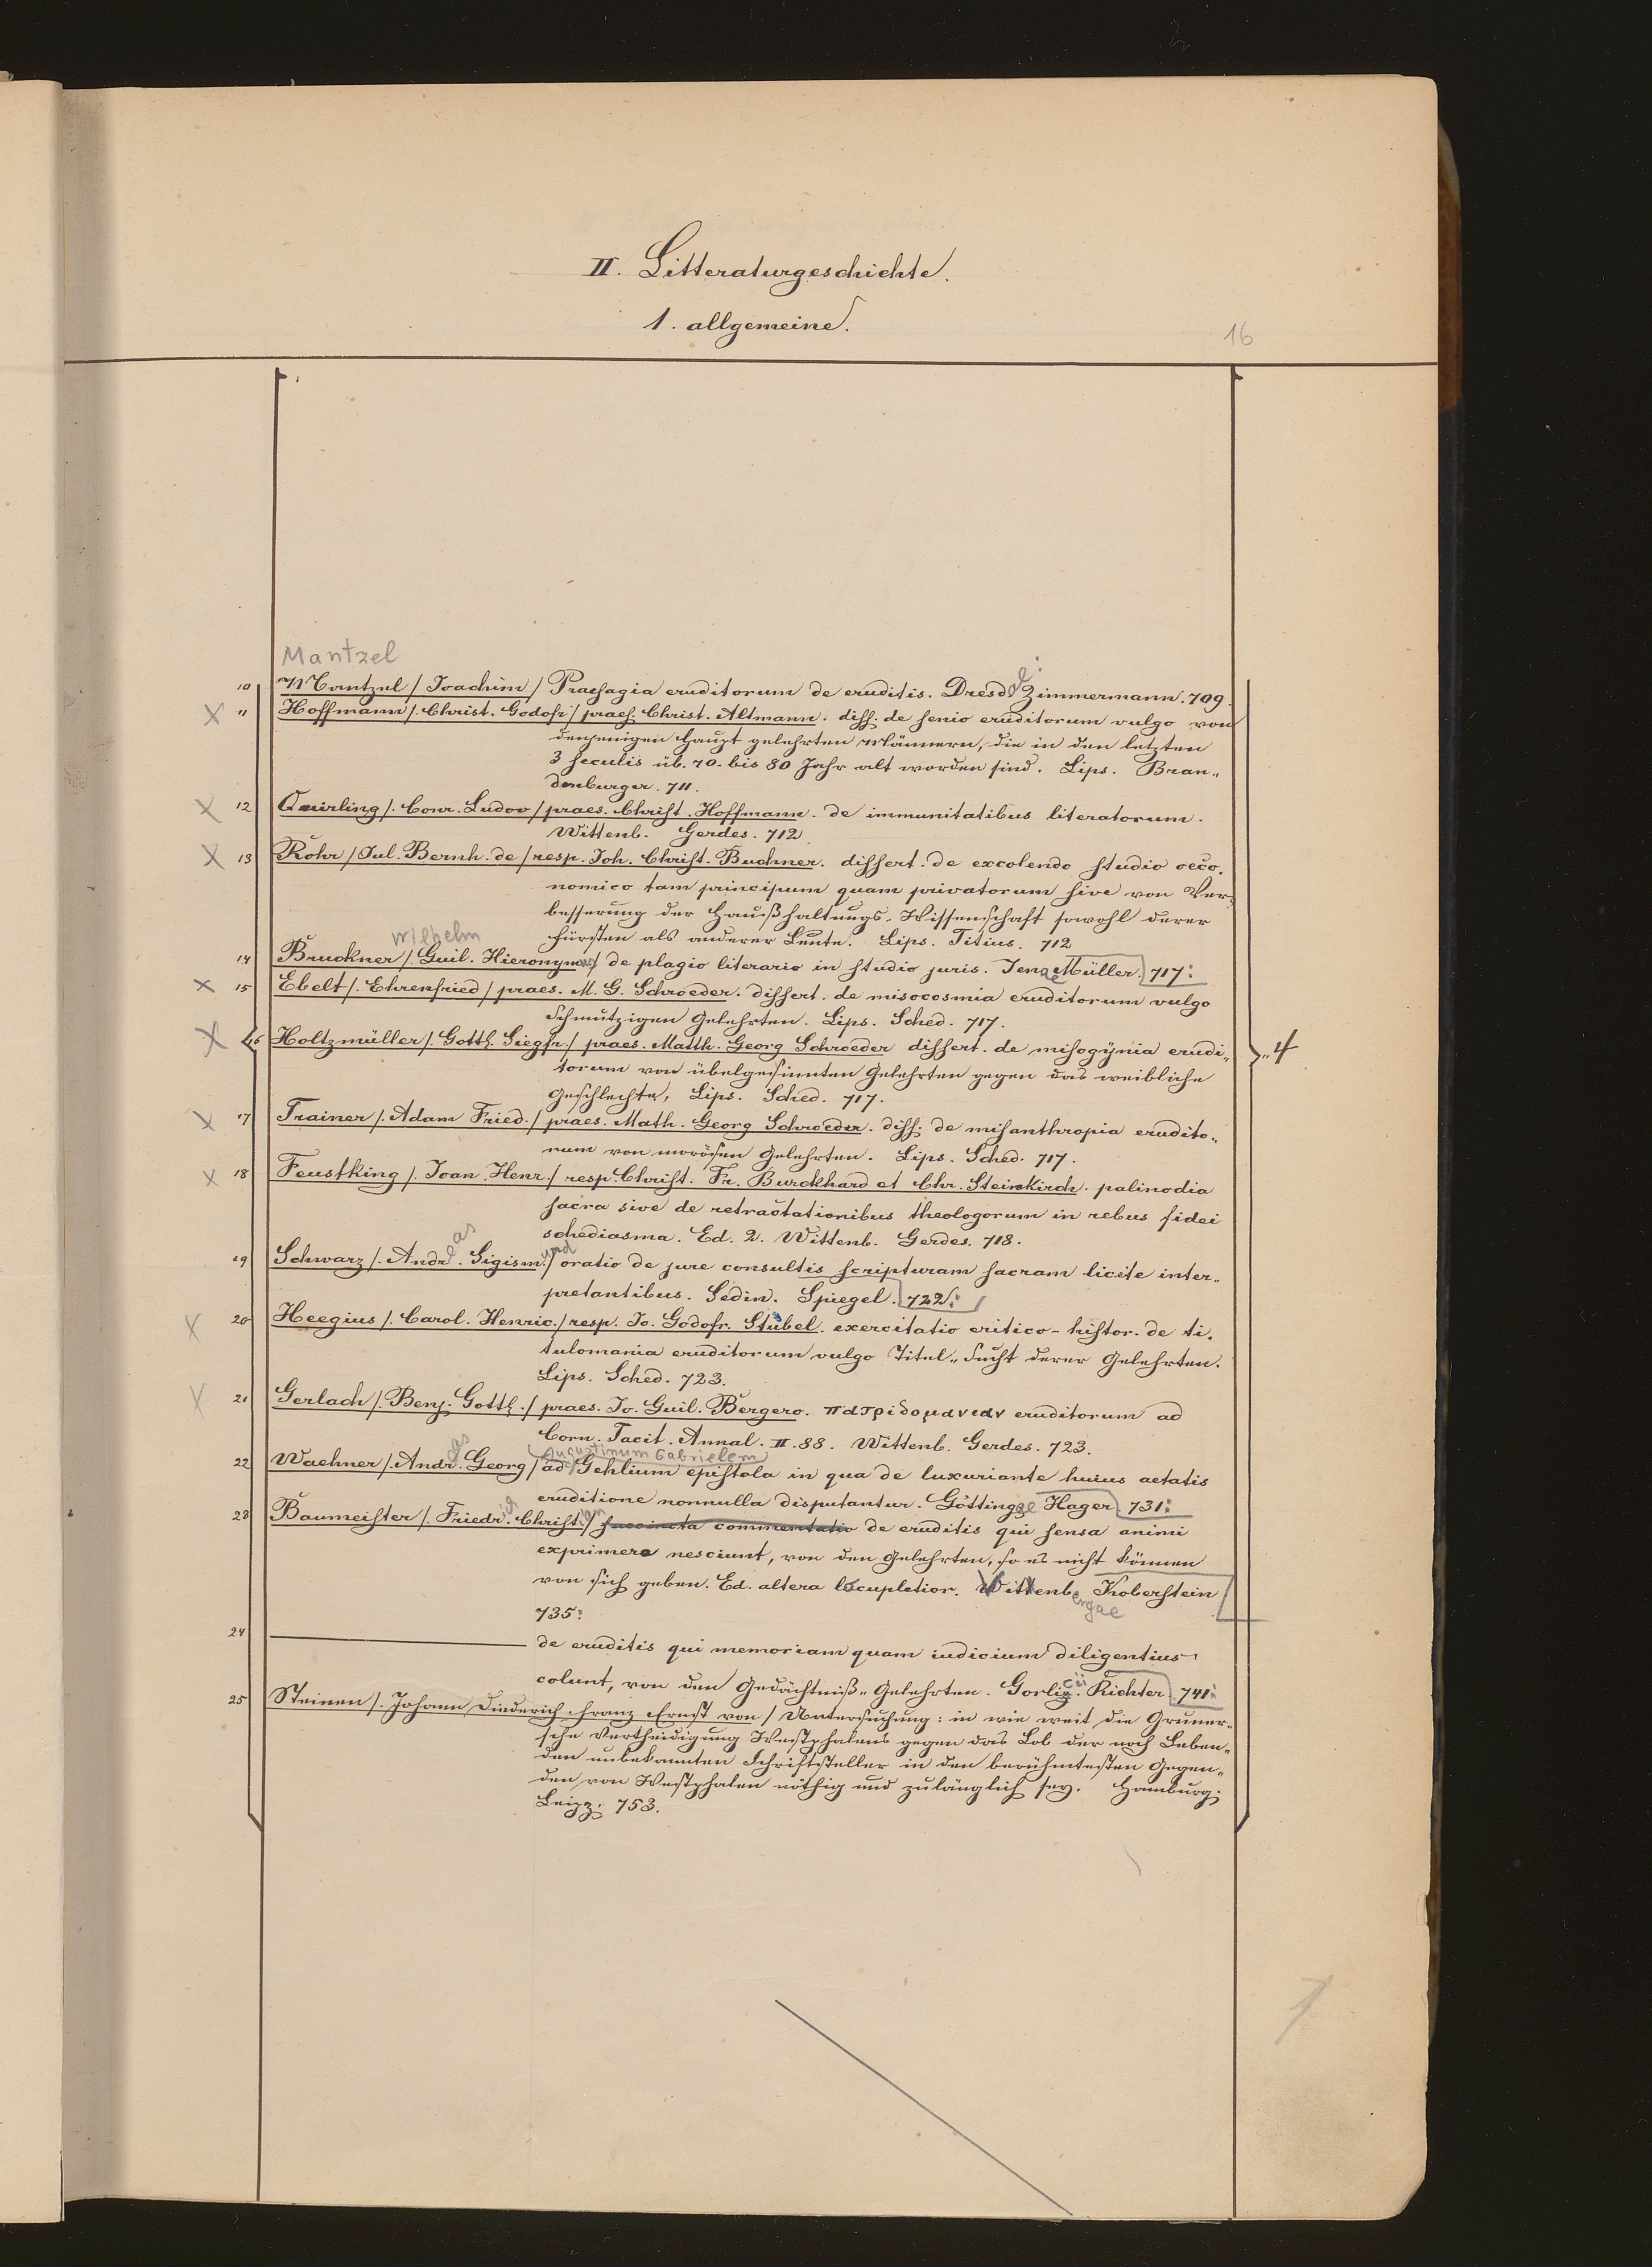 II. Litteraturgeschichte.
1. allgemeine.
16
Mantzel
10 Mantzel /. Joachim / Praesagia eruditorum de eruditis. Dresd. Zimmermann. 709.
X 11 Hoffmann /. Christ. Godofr / praes. Christ. Altmann. diss. de senio eruditorum vulgo von
denjenigen Haupt gelehrten Männern, die in den letzten
3 seculis üb. 70. bis 80 Jahr alt worden sind. Lips. Bran„
denburger. 711.
X 12 /. Conr. Ludov / praes. Christ. Hoffmann. de immunitatibus literatorum.
Wittenb. Gerdes. 712.
X 13 Rohr / Jul. Bernh. de / resp. Joh. Christ. Buchner. dissert. de excolendo studio oeco„
nomico tam principum quam privatorum sive von Ver„
besserung der Haußhaltungs„ Wissenschaft sowohl derer
Fürsten als anderer Leute. Lips. Titius. 712
Wilhelm
14 Bruckner /. Guil. Hieronymus / de plagio literario in studio juris. Jenae Müller. 717:
X 15 Ebelt /. Ehrenfried / praes. M. G. Schroeder. dissert. de misocosmia eruditorum vulgo
schmutzigen Gelehrten. Lips. Sched. 717.
X 16 Holtzmüller /. Gotth. Siegfr. / praes. Matth. Georg Schroeder dissert. de misogynia erudi„
torum von übelgesinnten Gelehrten gegen das weibliche
Geschlechte, Lips. Sched. 717.
„4
X 17 Trainer /. Adam Fried. / praes. Math. Georg Schroeder. diss: de misanthropia erudito„
rum von morösen Gelehrten. Lips. Sched. 717.
X 18 Feustking /. Joan. Henr. / resp. Christ. Fr. Burckhard et Chr. Steinkirch. palinodia
sacra sive de retractationibus theologorum in rebus fidei
schediasma. Ed. 2. Wittenb. Gerdes. 718.
19 Schwarz /. Andreas. Sigismund / oratio de jure consultis scripturam sacram licite inter„
pretantibus. Sedin. Spiegel. 722:
X 20 Heegius /. Carol. Henric. / resp. Jo. Godofr. Stübel. exercitatio critico-histor. de ti„
tulomania eruditorum vulgo Titel„ Sucht derer Gelehrten.
Lips. Sched. 723.
X 21 Gerlach /. Benj. Gotth. / praes. Jo. Guil. Bergero. eruditorum ad
Corn. Tacit. Annal. II. 88. Wittenb. Gerdes. 723.
Augustinum Gabrielem
22 Waehner /. Andreas. Georg / ad Gehlium epistola in qua de luxuriante huius aetatis
eruditione nonnulla disputantur. Göttingae Hager 731:
23 Baumeister /. Friedrich. Christian / succincta commentatio de eruditis qui sensa animi
exprimere nesciunt, von den Gelehrten, so es nicht können
von sich geben. Ed. altera locupletior. Wittenbengae Koberstein
735:
24 ——— de eruditis qui memoriam quam iudicium diligentius
colunt, von den Gedächtniß„ Gelehrten. Gorlicii Richter 741:
25 Steinen /. Johann Diederich Franz Ernst von / Untersuchung: in wie weit die Gruner„
sche Vertheidigung Westphalens gegen das Lob der noch Leben„
den unbekannten Schriftsteller in den berühmtesten Gegen„
den von Westphalen nöthig und zulänglich sey. Hamburg:
Leipz: 753.